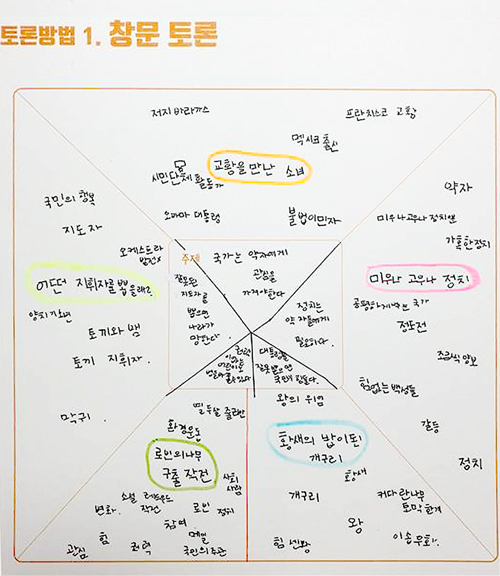 토론방법 1. 창문 토론
저지 바라가스
프란치스코 교황
멕시코 출신
교황을 만난 소녀
시민단체 활동가
오바마 대통령
불법이민자
국민의 행복
지도자
오케스트라
어떤 지휘자를 뽑을래?
양치기 소년
토끼와 뱀
토끼 지휘자.
막귀
약자
미우나 고우나 정치엔
가혹한 정치
미우나 고우나 정치
국가
정도전
조광식 영보
힘없는 백성들
갈등
정치
주제
국가는 약자에게
관심을
가져야한다
잘못된
지도자를
뽑으면
나라가
망한다.
정치는
약자들에게
필요하다.
권력
대통령을
잘못 뽑으면
국민이 힘들다.
열두살 줄리반
환경운동
로빈의 나무
구출 작전
사회
사람
소설 레드우드
작전
변화.
로빈
정치
참여
메일
관심
힘
권력
국민의 주권
왕의 위엄
황새의 밥이 된
개구리
황새
개구리
커다란 나무
토막 한개
왕
힘 센 왕
이솝우화.